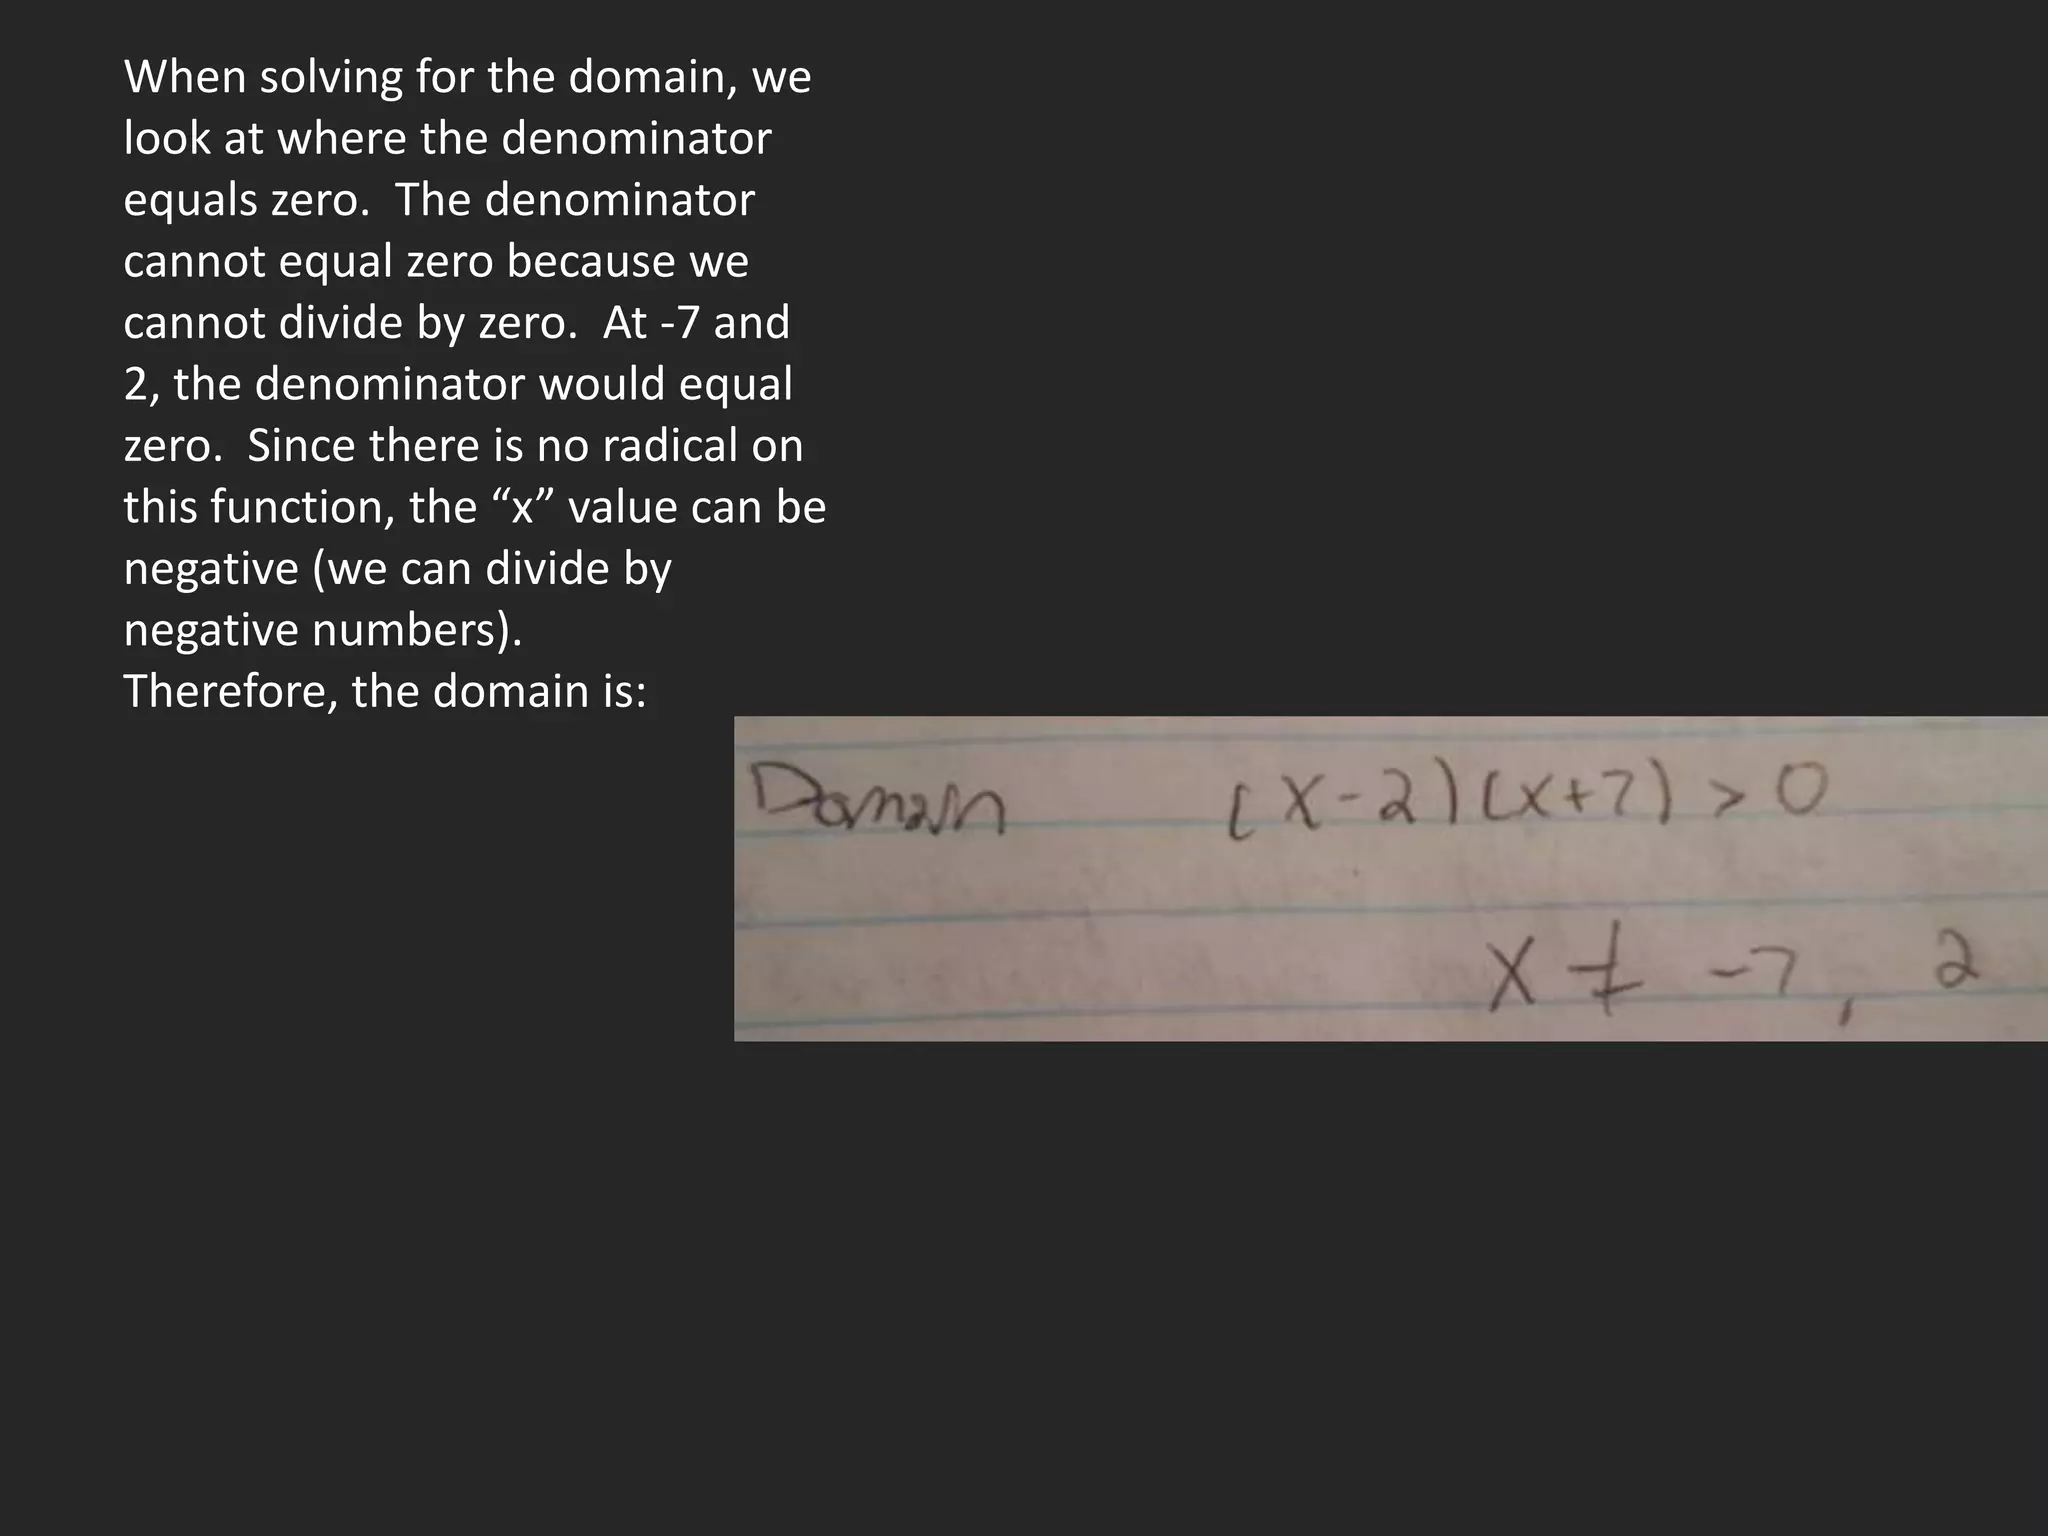 When solving for the domain, we
look at where the denominator
equals zero.  The denominator
cannot equal zero because we
cannot divide by zero.  At -7 and
2, the denominator would equal
zero.  Since there is no radical on
this function, the “x” value can be
negative (we can divide by
negative numbers).
Therefore, the domain is:
Domain (x-2)(x+7) > 0
x ≠ -7, 2